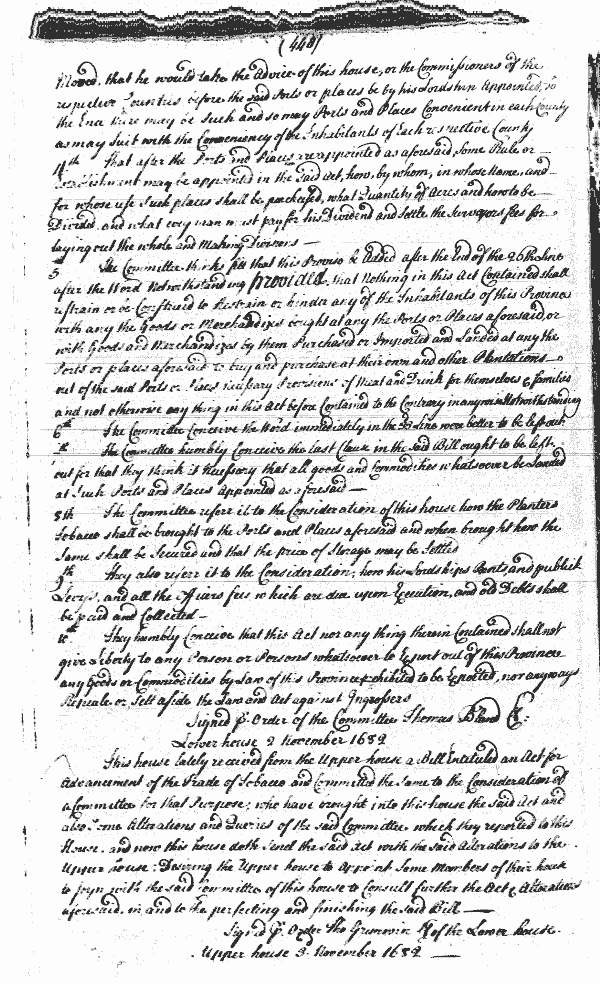 (448)
Moved, that he would take the Advice of this house, or the Commissioners of the
respective Counties before the said Ports or places be by his Lordship Appointed, to
the End there may be Such and so many Ports and Places Convenient in each County
as may Suit with the Conveniency of the Inhabitants of Each respective County
4th That after the Ports and Places are appointed as aforesaid, Some Rule or
Establishment may be appointed in the Said Act, how, by whom, in whose Name, and
for whose use Such places shall be purchased, what Quantity of Acres and how to be
Divided, and what every man must pay for his Dividend and Settle the Surveyors fees for
laying out the whole and Making Divisions —
5 The Committee thinks fitt that this Proviso be Added after the End of the 26th Line
after the Word Notwithstanding Provided, that Nothing in this Act Contained shall
restrain or be Construed to Restrain or hinder any of the Inhabitants of this Province
with any the Goods or Merchandizes bought at any the Ports or Places aforesaid, or
with Goods and Merchandizes by them Purchased or Imported and Landed at any the
Ports or places aforesaid to buy and purchase at their own and other Plantations
out of the said Ports or Places necessary Provisions of Meat and Drink for themselves & families
and not otherwise any thing in this Act before Contained to the Contrary in any wise Notwithstanding
6th The Committee Conceive the Word immediately in the Line were better to be left out
th The Committee humbly Conceive the last Clause in the Said Bill ought to be left
out for that they think it Necessary that all goods and Commodities whatsoever be Landed
at Such Ports and Places Appointed as aforesaid —
8th The Committee referr it to the Consideration of this house how the Planters
Tobacco shall be brought to the Ports and Places aforesaid and when brought how the
Same shall be Secured and that the price of Storage may be Settled
9th They also referr it to the Consideration, how his Lordships Rents, and publick
Levys, and all the Officers fees which are due upon Execution, and old Debts shall
be paid and Collected —
10th They humbly Conceive that this Act nor any thing therein Contained shall not
give Liberty to any Person or Persons whatsoever to Export out of this Province
any Goods or Commodities by Law of this Province prohibited to be Exported, nor anyways
Repeale or Sett aside the Law and Act against Ingrossers
Signed p. Order of the Committee Thomas Bland Cl:
Lower house 2 November 1682
This house lately received from the Upper house a Bill Entituled an Act for
Advancement of the Trade of Tobacco and Committed the Same to the Consideration of
a Committee for that Purpose; who have brought into this house the Said Act and
also Some Alterations and Queries of the said Committee which they reported to this
House, and now this house doth Send the said Act with the said Alterations to the
Upper house: Desireing the Upper house to Appoint Some Members of their house
to joyn with the said Committee of this house to Consult further the Act & Alterations
aforesaid, in and to the perfecting and finishing the Said Bill —
Signed p. Order Tho Grunwin Cl of the Lower house.
Upper house 3. November 1682 —